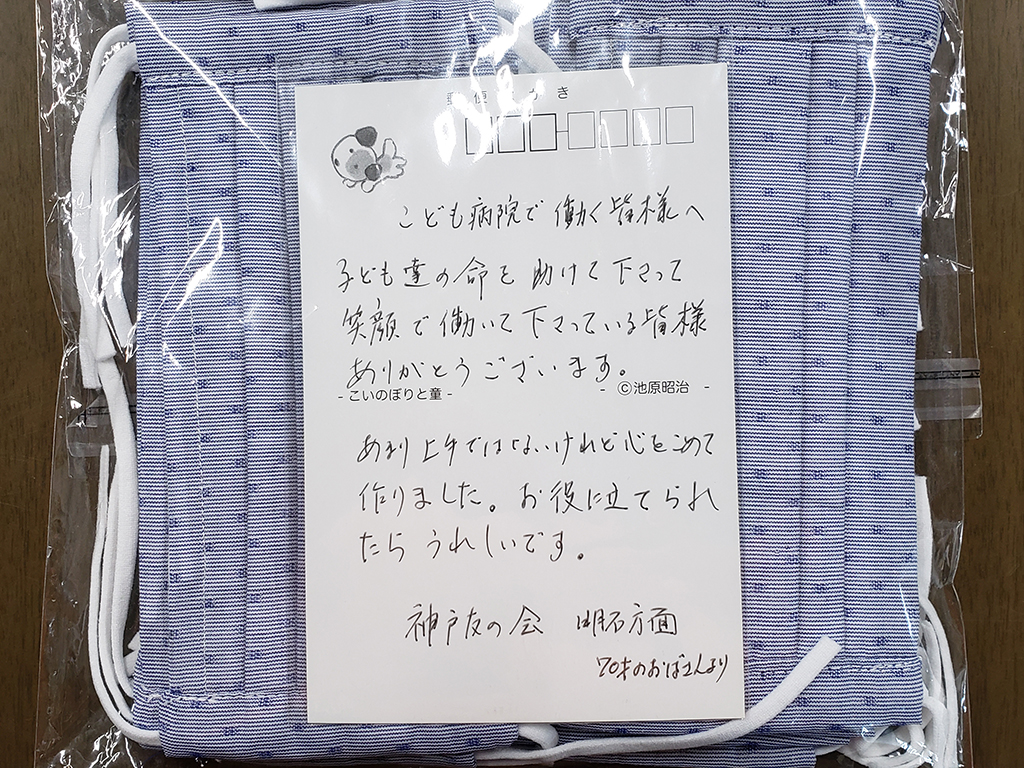 郵便 がき
こども病院で働く皆様へ
子ども達の命を助けて下さって
笑顔で働いて下さっている皆様
ありがとうございます。
- こいのぼりと童 - - ©池原昭治 -
あまり上手ではないけれど心をこめて
作りました。お役に立てられ
たらうれしいです。
神戸友の会 明石方面
70才のおばさんより